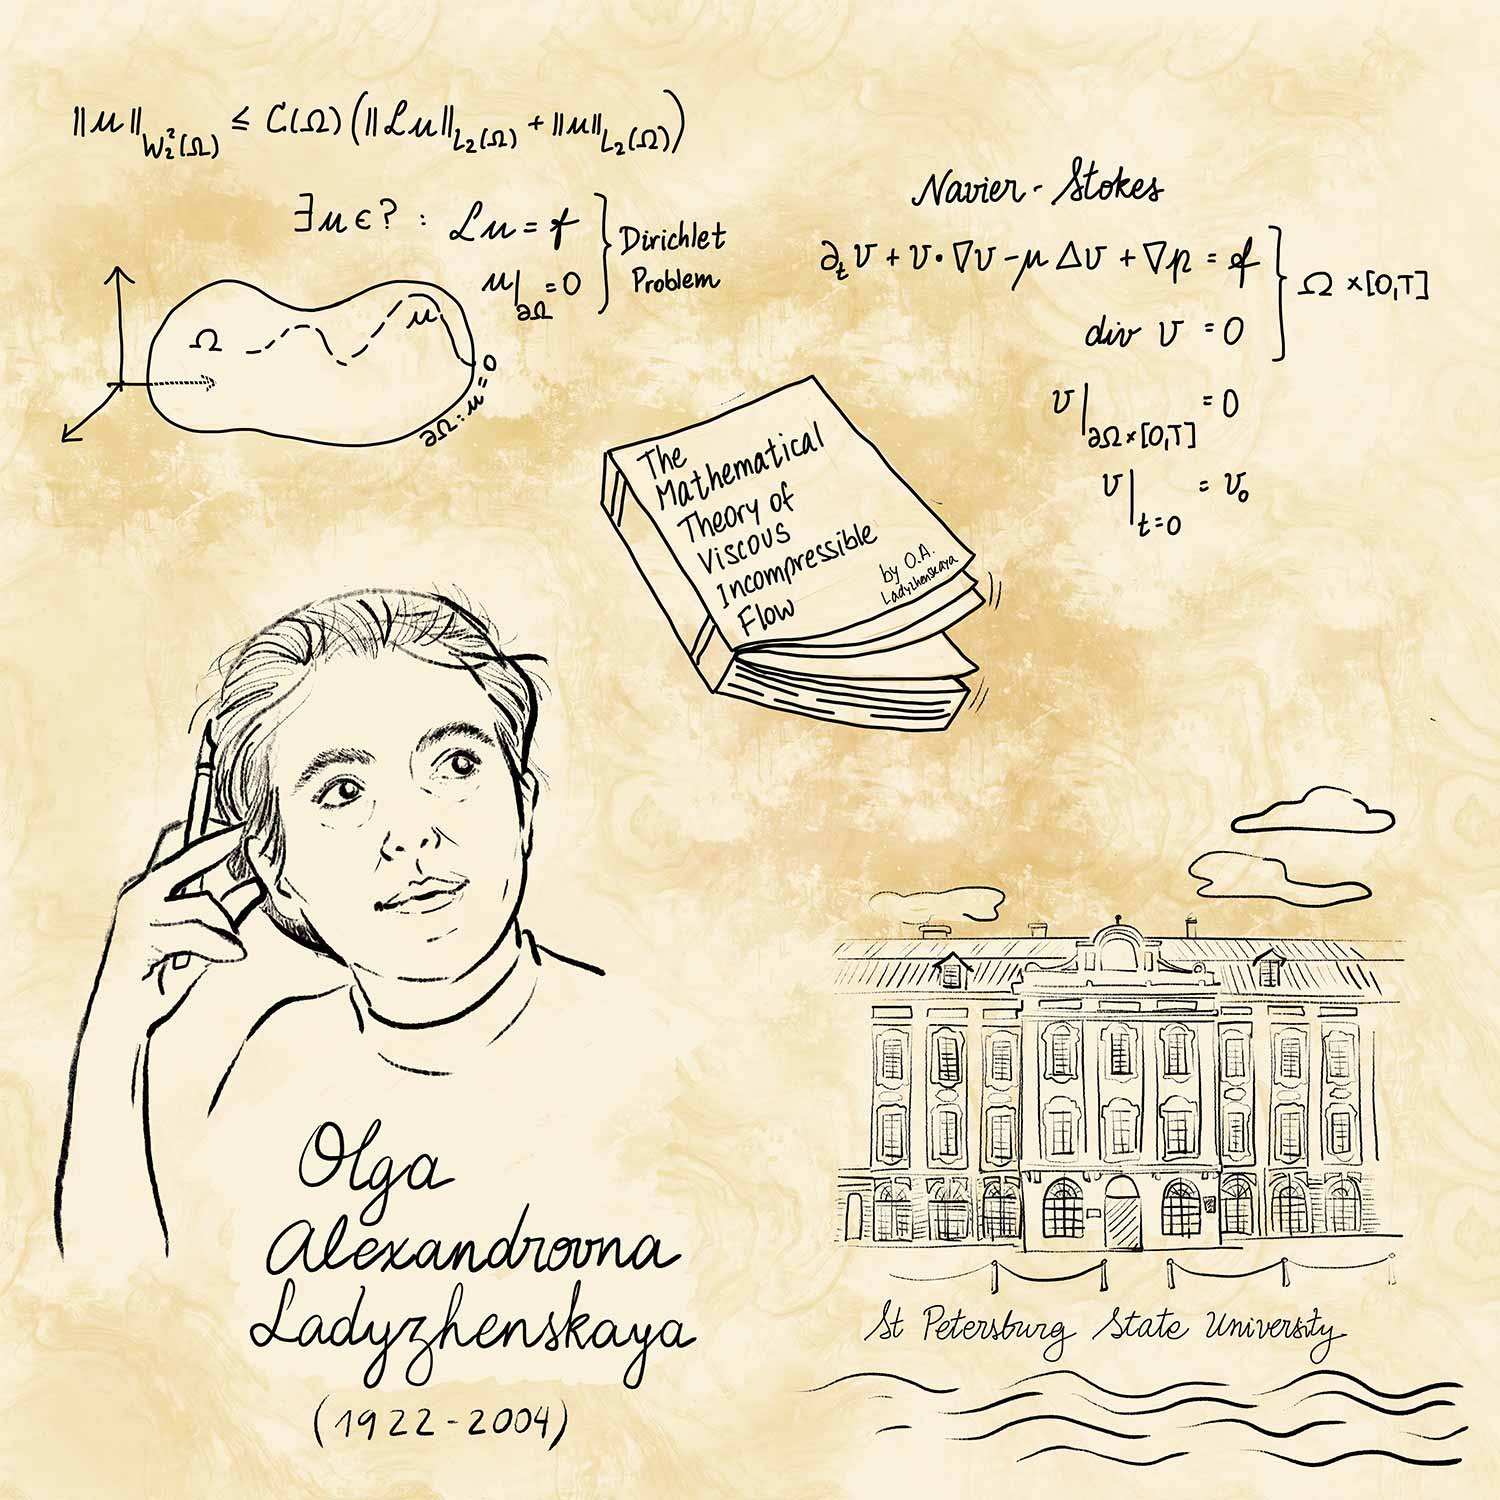 ‖u‖_{W₂²(Ω)} ≤ C(Ω)(‖ℒu‖_{L₂(Ω)} + ‖u‖_{L₂(Ω)})
∃u∈? : ℒu = f } Dirichlet
u|_{∂Ω} = 0 Problem
Ω
u
∂Ω: u = 0
Navier - Stokes
∂ₜv + v·∇v - μΔv + ∇p = f } Ω×[0,T]
div v = 0
v|_{∂Ω×[0,T]} = 0
v|_{t=0} = v₀
The
Mathematical
Theory of
Viscous
Incompressible
Flow
by O.A.
Ladyzhenskaya
Olga
Alexandrovna
Ladyzhenskaya
(1922-2004)
St Petersburg State University